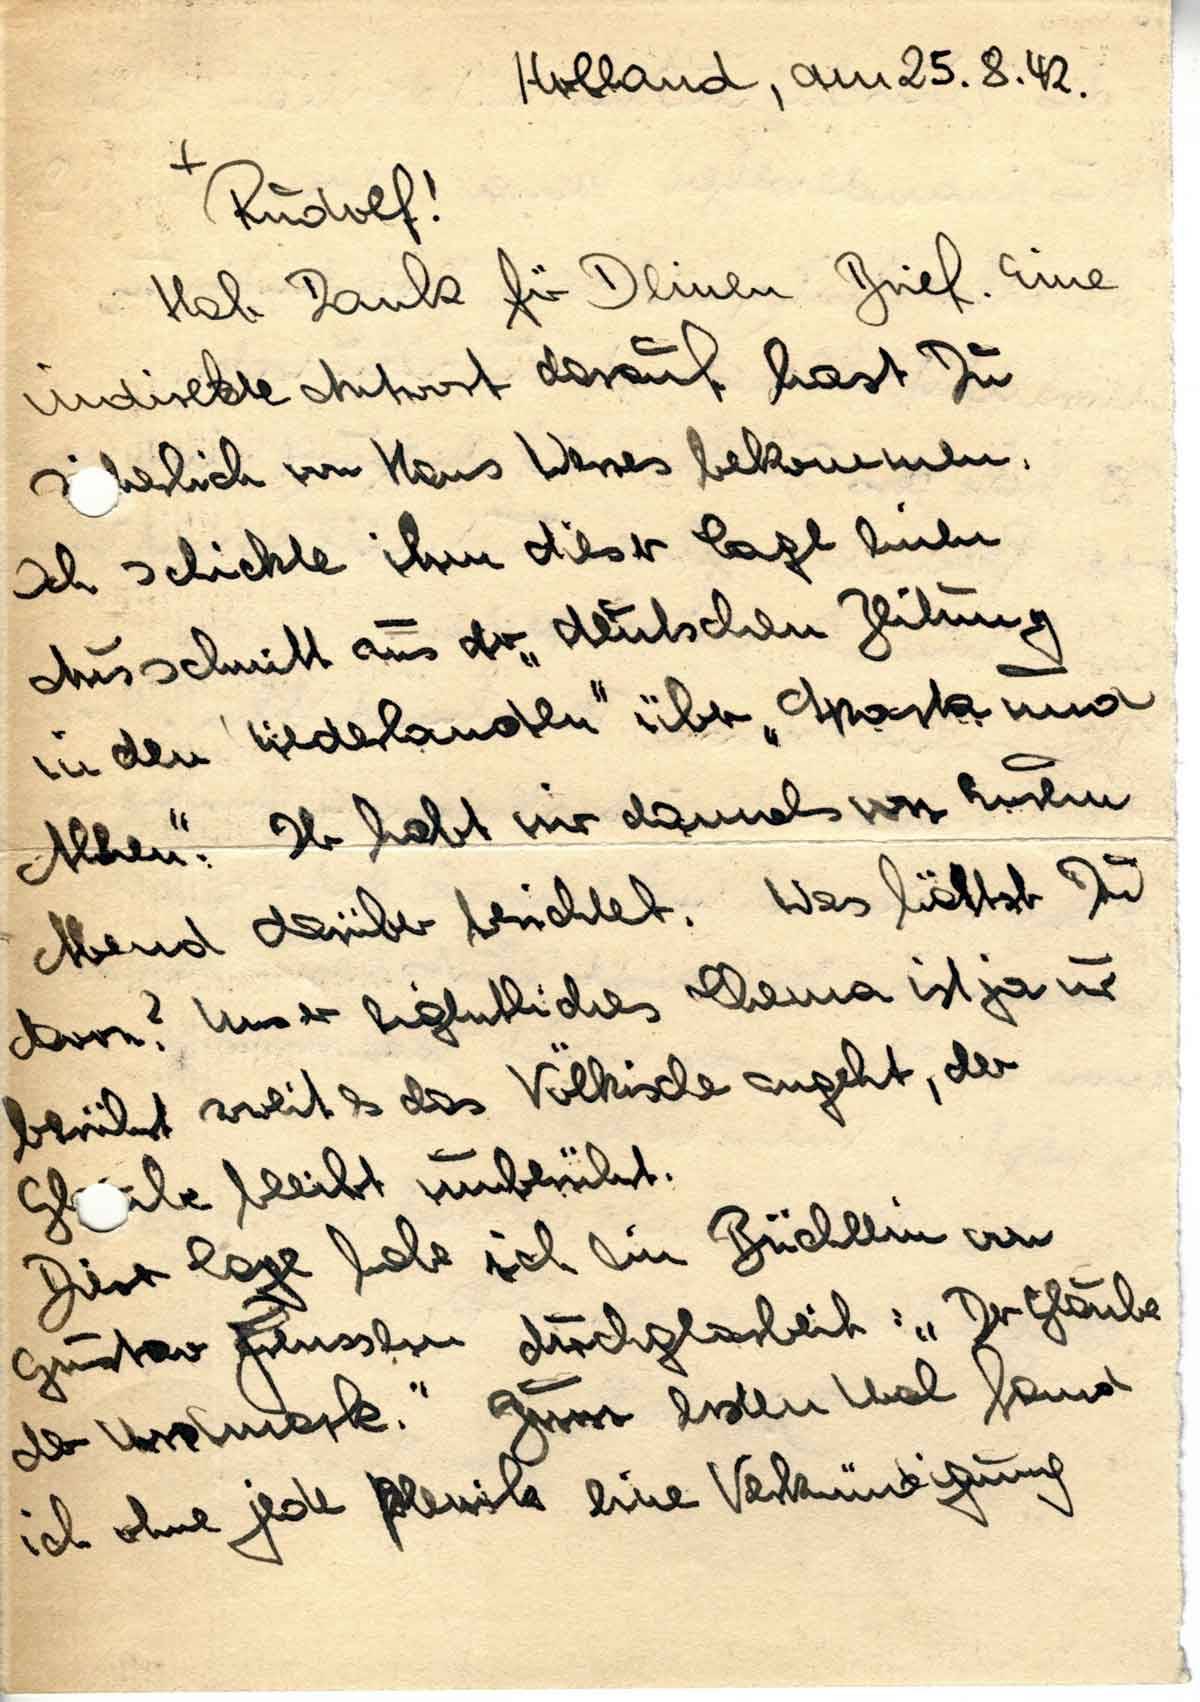 Holland, am 25.8.42.
+
Rudolf!
Hab Dank für Deinen Brief. Eine
indirekte Antwort darauf hast Du
sicherlich von Hans bekommen.
Ich schickte ihm dieser Tage einen
Ausschnitt aus der „deutschen Zeitung
in den Niederlanden" über „Sparta und
Athen". Ihr habt mir damals von Eurem
Abend darüber berichtet. Was hältst Du
davon? Unser eigentliches Thema ist ja nur
berührt soweit es das Völkische angeht, der
Glaube bleibt unberührt.
Dieser Tage habe ich ein Büchlein von
Gustav Frenssen durchgearbeit: „Der Glaube
der Nordmark." Zum ersten Mal fand
ich ohne jede Polemik eine Verkündigung